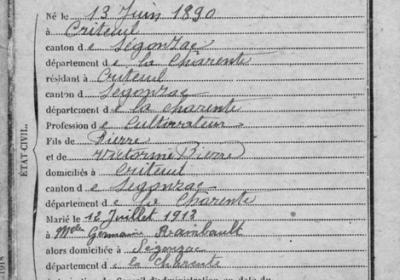 Né le 13 Juin 1890
à Criteuil
canton de Segonzac
département de la Charente
résidant à Criteuil
canton d Segonzac
département de la charente
Profession de Cultivateur
Fils de Pierre
et de Victorine Pierre
domiciliés à Criteuil
canton de Segonzac
département de la Charente
Marié le 12 Juillet 1913
à Melle Germaine Raimbault
alors domiciliée à Segonzac
département de la Charente
ÉTAT CIVIL.